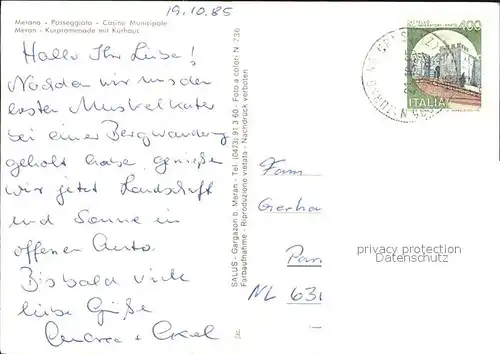 19.10.85
Merano - Passeggiata - Casino Municipale
Meran - Kurpromenade mit Kurhaus
Hallo Ihr Lieben!
Nachdem wir uns den
ersten Muskelkater
bei einer Bergwanderung
geholt haben, genießen
wir jetzt Landschaft
und Sonne im
offenen Auto.
Bis bald viele
liebe Grüße
SALUS - Gargazon b. Meran - Tel. (0473) 91 3 60 - Foto a colori: N. 736
Farbaufnahme - Riproduzione vietata - Nachdruck verboten
400
ITALIA
Fam
Gerha
NL 631
privacy protection
Datenschutz